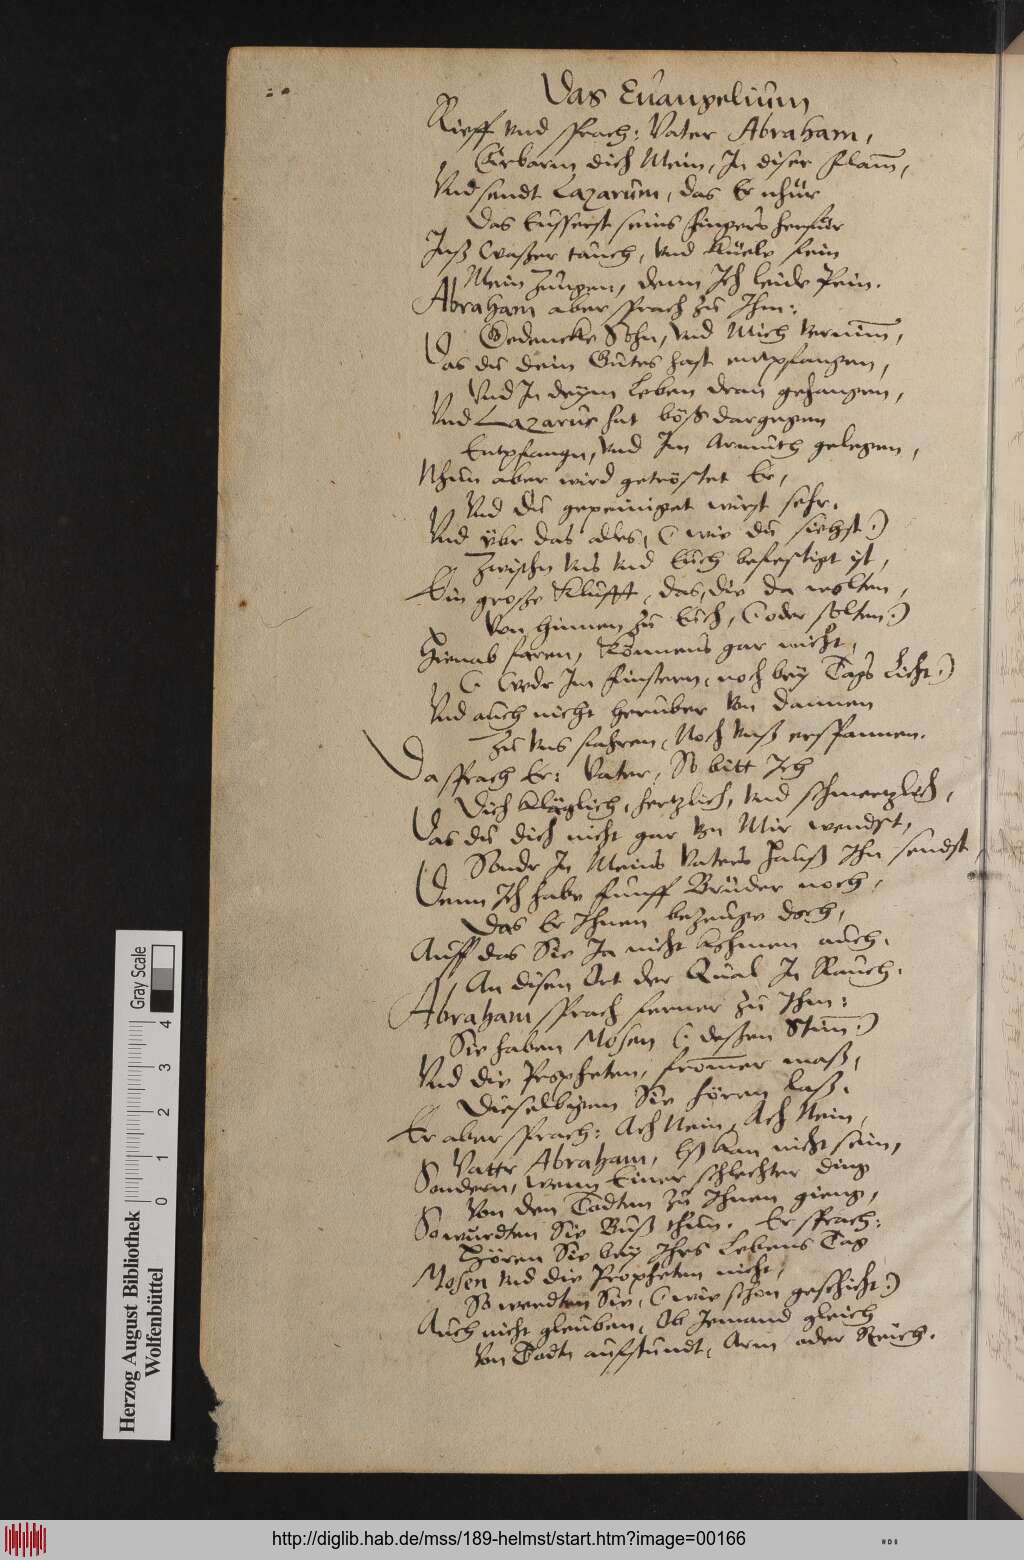 Das Euangelium
Rieff vnd sprach: Vater Abraham,
Erbarm dich Mein, In diser flam̄,
Vnd sendt Lazarum, das Er nhür
Das Eusserst seins fingers herfür
Inß Waßer tauch, vnd küele fein
Mein Zungen, denn Ich leide Pein.
Abraham aber sprach zu Ihm:
Gedencke Sohn, vnd Mich vernim̄,
Das du dein Gutes hast entpfangen,
Vnd In deym leben dran gehangen,
Vnd Lazarus hat böß dargegen
Entpfangn, vnd Im Armuth gelegen,
Nhun aber wird getröstet Er,
Vnd du gepeiniget wirst sehr.
Vnd vbr das alles, (: wie du siehst :)
Zwischn vns vnd Euch befestigt ist,
Ein große Klufft, das, die da wolten,
Von hinnen zu Euch, (: oder solten :)
Hienab faren, Können's gar nicht,
(: Wedr Im finstern, noch bey Tags Licht :)
Vnd auch nicht herüber von dannen
Zu vns fahren, Noch vnß erspannen.
Da sprach Er: Vater, So bitt Ich
Dich kläglich, hertzlich, vnd schmertzlich,
Das du dich nicht gar von Mir wendst,
Sondr In Meins Vaters Hauß Ihn sendst,
Denn Ich habe funff Brüder noch,
Das Er Ihnen bezeuge doch,
Auff das Sie Ja nicht kohmen auch,
An disen Ort der Qual In Rauch.
Abraham sprach ferner zu Ihm:
Sie haben Mosen (: deßen Stim̄ :)
Vnd die Propheten, from̄er maß,
Dieselbigen Sie hören laß.
Er aber sprach: Ach Nein, Ach Nein,
Vattr Abraham, Eß kan nicht sein,
Sondern, wenn Einer schlechter ding
Von den Todten zu Ihnen gieng,
So wurdten Sie Buß thun. Er sprach:
Hören Sie bey Ihrs lebens Tag
Mosen vnd die Propheten nicht,
So werdten Sie, (: wie schon geschicht :)
Auch nicht gleuben, Ob Jemand gleich
Von Todtn aufstundt, Arm oder Reich.
Herzog August Bibliothek
Wolfenbüttel
0 1 2 3 4
Gray Scale
http://diglib.hab.de/mss/189-helmst/start.htm?image=00166